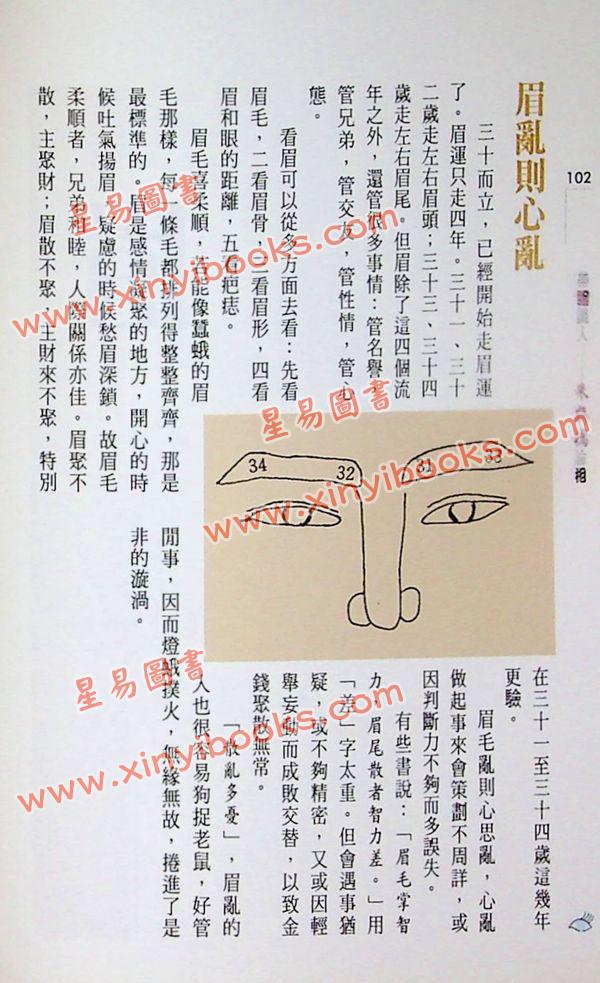 102
相
眉亂則心亂
三十而立，已經開始走眉運
了。眉運只走四年。三十一、三十
二歲走左右眉頭；三十三、三十四
歲走左右眉尾。但眉除了這四個流
年之外，還管很多事情：管名譽，
管兄弟，管交友，管性情，管心
態。
看眉可以從多方面去看：先看
眉毛，二看眉骨，三看眉形，四看
眉和眼的距離，五看疤痣。
眉毛喜柔順，若能像蠶蛾的眉
毛那樣，每一條毛都排列得整整齊齊，那是
最標準的。眉是感情凝聚的地方，開心的時
候吐氣揚眉，疑慮的時候愁眉深鎖。故眉毛
柔順者，兄弟和睦，人際關係亦佳。眉聚不
散，主聚財；眉散不聚，主財來不聚，特別
34
32
31
33
在三十一至三十四歲這幾年
更驗。
眉毛亂則心思亂，心亂
做起事來會策劃不周詳，或
因判斷力不夠而多誤失。
有些書說：「眉毛掌智
力，眉尾散者智力差。」用
「差」字太重。但會遇事猶
疑，或不夠精密，又或因輕
舉妄動而成敗交替，以致金
錢聚散無常。
「散亂多憂」，眉亂的
人也很容易狗捉老鼠，好管
閒事，因而燈蛾撲火，無緣無故，捲進了是
非的漩渦。
星易圖書
www.xinyibooks.com
星易圖書
www.xinyibooks.com
星易圖書
www.xinyibooks.com
星易圖書
www.xinyibooks.com